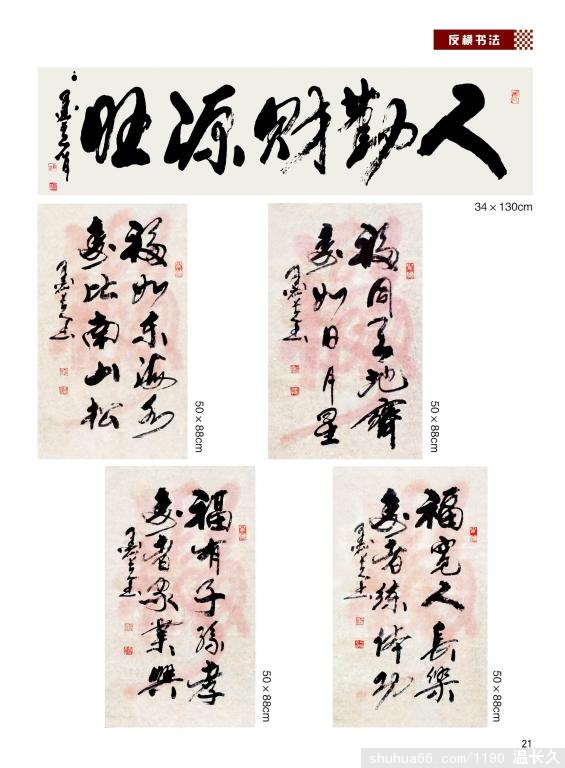 反横书法
人勤财源旺
34×130cm
福如东海水
寿比南山松
50×88cm
福同天地齊
寿如日月星
50×88cm
福有子孫孝
寿者家業興
50×88cm
福寬人長樂
寿者練体功
50×88cm
21
shuhua66.com/1190 温长久